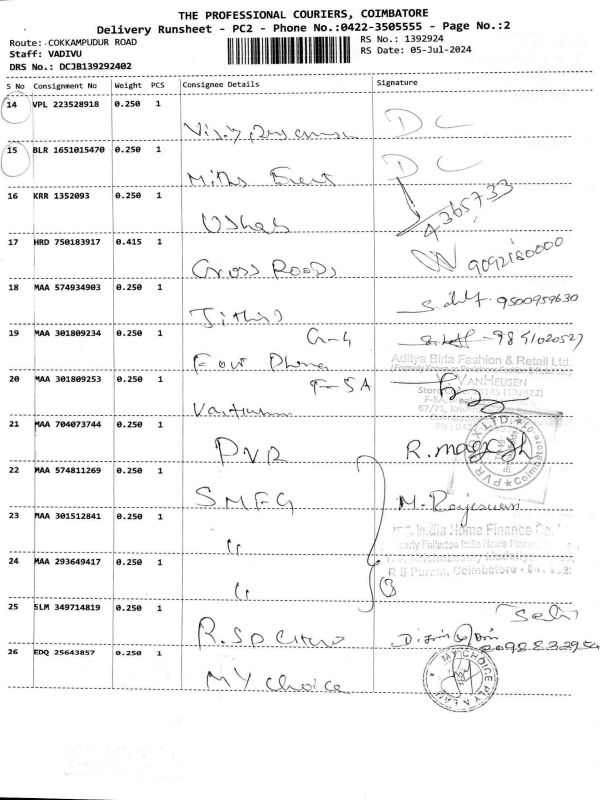 THE PROFESSIONAL COURIERS, COIMBATORE
Delivery Runsheet - PC2 - Phone No.:0422-3505555 - Page No.:2
Route: COKKAMPUDUR ROAD
RS No.: 1392924
Staff: VADIVU
RS Date: 05-Jul-2024
DRS No.: DCJB139292402
S No Consignment No Weight PCS Consignee Details Signature
14 VPL 223528918 0.250 1 DC
15 BLR 1651015470 0.250 1 DC
16 KRR 1352093 0.250 1 Ushas 4365733
17 HRD 750183917 0.415 1 Cross Roads 9092180000
18 MAA 574934903 0.250 1 9500959630
19 MAA 301809234 0.250 1 G-4
Aditya Birla Fashion & Retail Ltd.
20 MAA 301809253 0.250 1 F-5A VANHEUSEN
21 MAA 704073744 0.250 1 PVR
22 MAA 574811269 0.250 1 SMFG
23 MAA 301512841 0.250 1 "
India Home Finance Co.
24 MAA 293649417 0.250 1 " 3
R S Puram, Coimbatore
25 SLM 349714819 0.250 1
26 EDQ 25643857 0.250 1 MY Choice MY CHOICE PLY